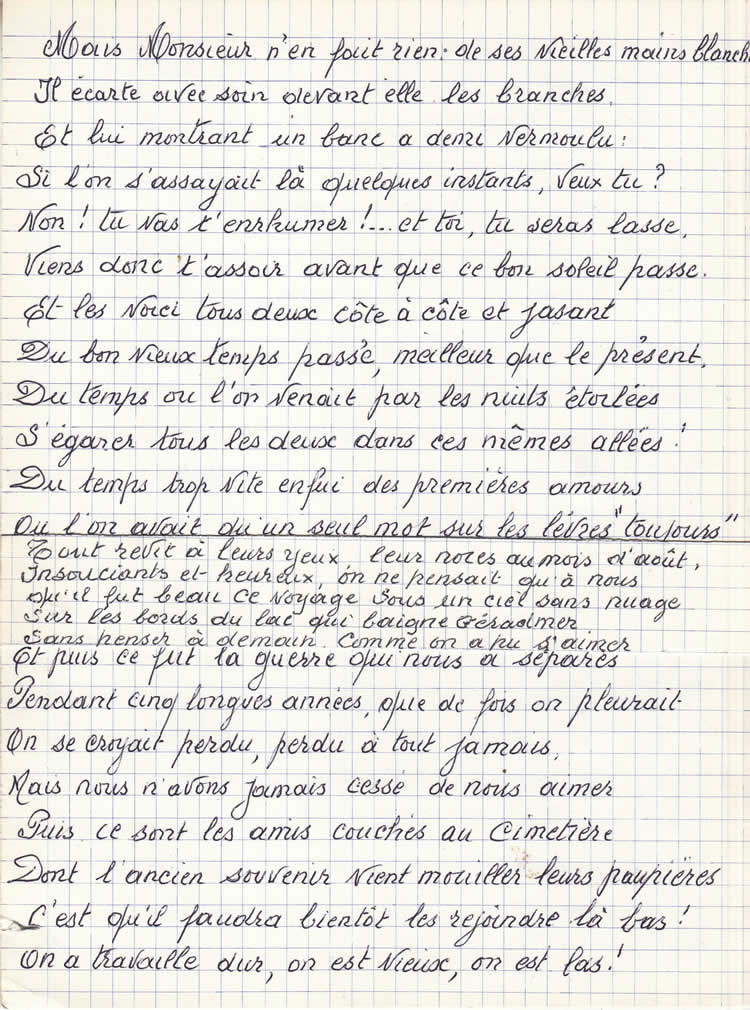 Mais Monsieur n'en fait rien: de ses vieilles mains blanch
Il écarte avec soin devant elle les branches.
Et lui montrant un banc a demi vermoulu:
Si l'on s'assayait là quelques instants, veux tu?
Non! tu vas t'enrhumer!... et toi, tu seras lasse,
Viens donc t'assoir avant que ce bon soleil passe.
Et les voici tous deux côte à côte et jasant
Du bon vieux temps passé, meilleur que le présent,
Du temps ou l'on venait par les nuits étoilées
S'égarer tous les deux dans ces mêmes allées!
Du temps trop vite enfui des premières amours
Ou l'on avait qu'un seul mot sur les lèvres "toujours"
Tout revit à leurs yeux, leur noces au mois d'août,
Insouciants et heureux, on ne pensait qu'à nous
qu'il fut beau ce voyage sous un ciel sans nuage
Sur les bords du lac qui baigne Géradmer
Sans penser à demain. Comme on a pu s'aimer
Et puis ce fut la guerre qui nous a séparés
Pendant cinq longues années, que de fois on pleurait
On se croyait perdu, perdu à tout jamais,
Mais nous n'avons jamais cessé de nous aimer
Puis ce sont les amis couchés au Cimetière
Dont l'ancien souvenir vient mouiller leurs paupières
C'est qu'il faudra bientôt les rejoindre là bas!
On a travaille dur, on est vieux, on est las!